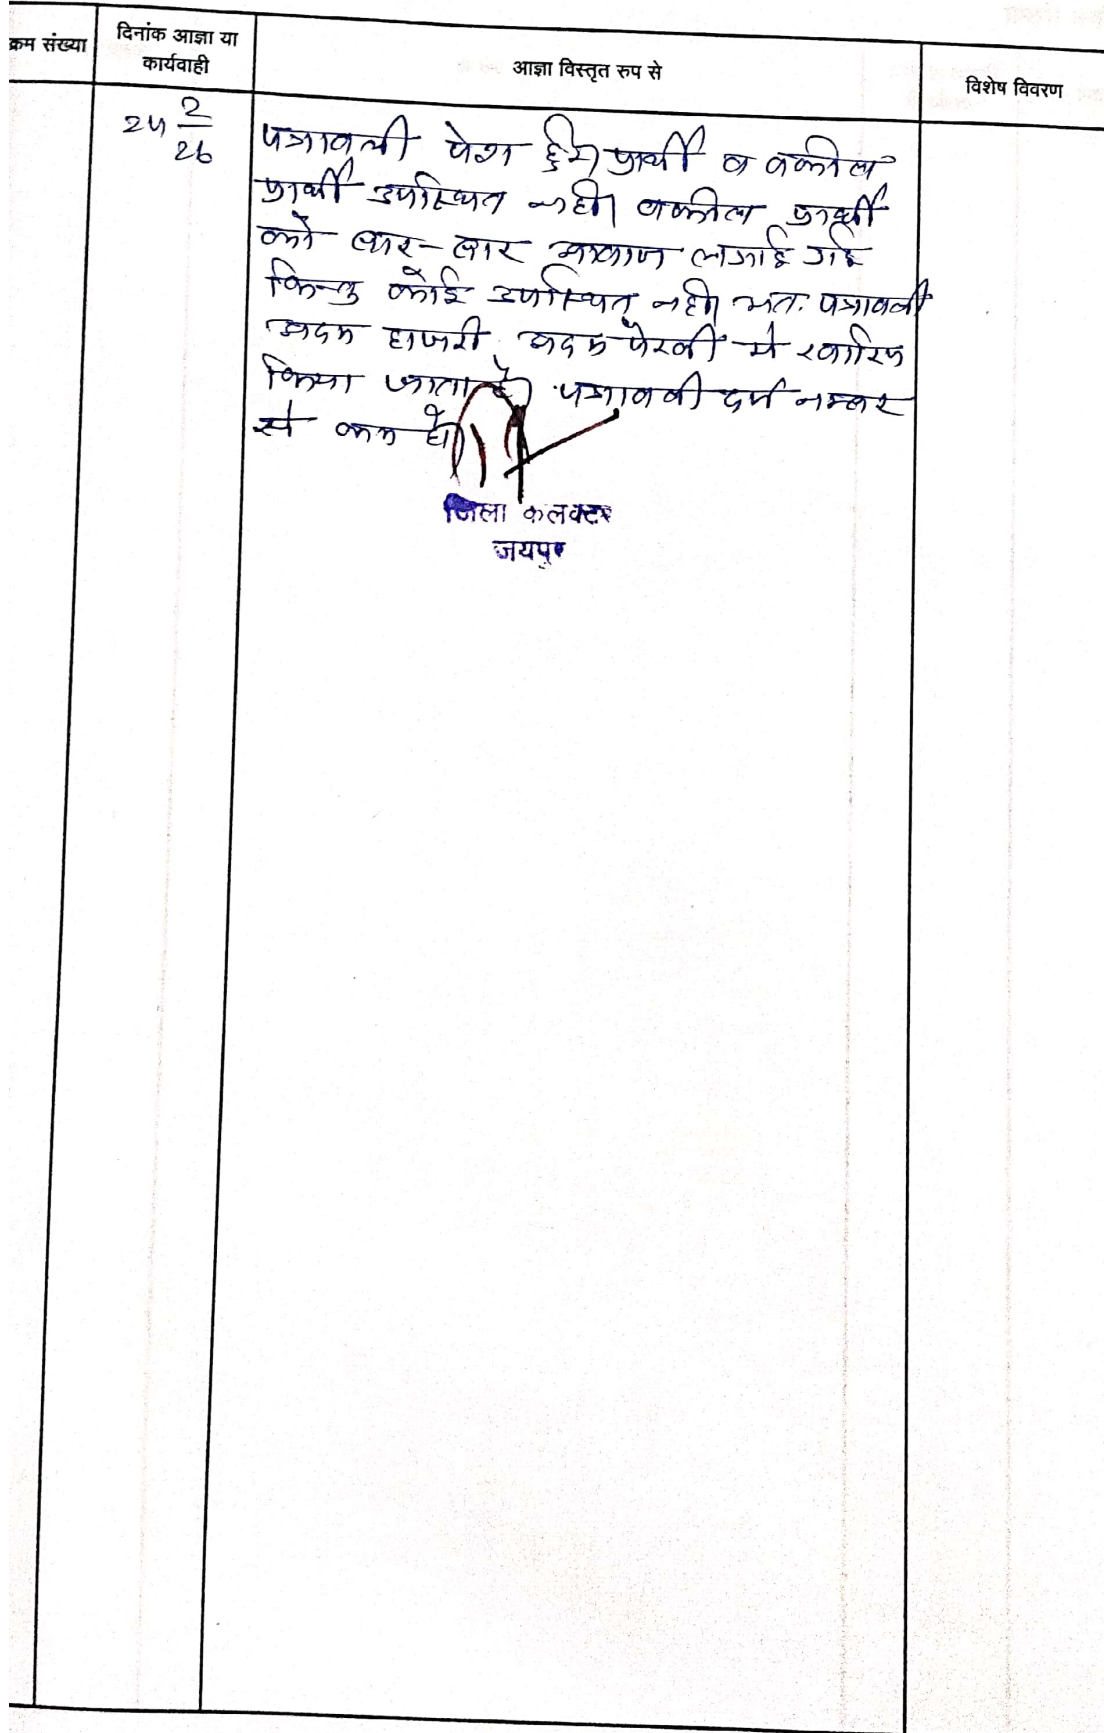 क्रम संख्या
दिनांक आज्ञा या
कार्यवाही
आज्ञा विस्तृत रुप से
विशेष विवरण
25 2/26
पत्रावली पेश हुई। प्रार्थी व वकील
प्रार्थी उपस्थित नही। वकील प्रार्थी
को बार-बार आवाज लगाई गई
किन्तु कोई उपस्थित नही। अतः पत्रावली
अदम हाजरी अदम पैरवी मे खारिज
किया जाता है। पत्रावली दर्ज नम्बर
से कम हो।
जिला कलक्टर
जयपुर